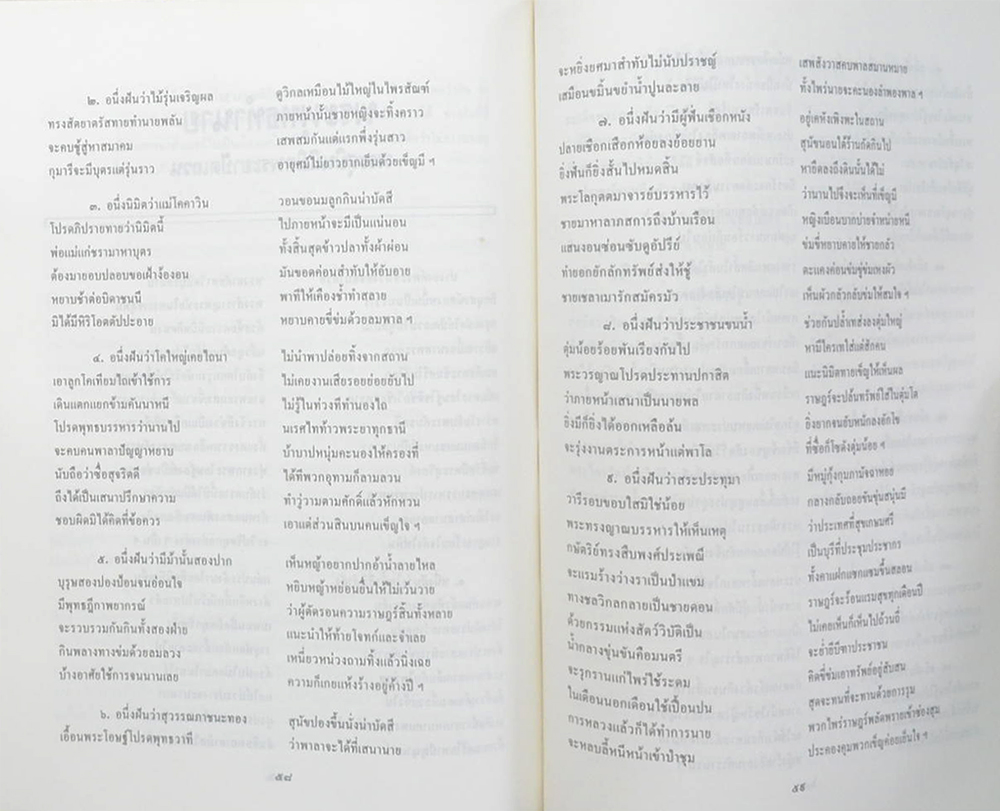 ๒. อนึ่งฝันว่าไม้รุ่นเจริญผล ดูวิกลเหมือนไม้ใหญ่ในไพรสัณฑ์
ทรงสัตยาตรัสทายทำนายพลัน ภายหน้านั้นชายหญิงจะทิ้งคราว
จะคบชู้สู่หาสมาคม เสพสมกันแต่แรกพึ่งรุ่นสาว
กุมารีจะมีบุตรแต่รุ่นราว อายุคมไม่ยาวยากเย็นด้วยเข็ญมี ฯ
๓. อนึ่งนิมิตว่าแม่โคคาวิน วอนขอนมลูกกินน่าบัดสี
โปรดภิปรายทายว่านิมิตนี้ ไปภายหน้าจะมีเป็นแน่นอน
พ่อแม่แก่ชรามาหาบุตร ทั้งสิ้นสุดข้าวปลาทั้งผ้าผ่อน
ต้องมายอบปลอบขอเฝ้าง้องอน มันขอดค่อนสำทับให้อับอาย
หยาบช้าต่อบิดาชนนี พาทีให้เคืองช้ำทำสลาย
มิได้มีหิริโอตตัปปะอาย หยาบคายขี่ข่มด้วยลมพาล ฯ
๔. อนึ่งฝันว่าโคใหญ่เคยไถนา ไม่นำพาปล่อยทิ้งจากสถาน
เอาลูกโคเทียมไถเข้าใช้การ ไม่เคยงานเสียรอยย่อยยับไป
เดินแตกแยกข้ามคันนาหนี ไม่รู้ในท่วงทีทำนองไถ
โปรดพุทธบรรหารว่านานไป นเรศไทท้าวพระยาทุกธานี
จะคบคนพาลาปัญญาหยาบ บ้าบาปหนุ่มคะนองให้ครองที่
นับถือว่าซื่อสุจริตดี ได้ทีพวกอุทามก็ลามลวน
ถึงได้เป็นเสนาปรึกษาความ ทำวู่วามตามศักดิ์แล้วหักหวน
ชอบผิดมิได้คิดที่ข้อควร เอาแต่ส่วนสินบนคนเข็ญใจ ฯ
๕. อนึ่งฝันว่ามีม้านั้นสองปาก เห็นหญ้าอยากปากอ้าน้ำลายไหล
บุรุษสองปองป้อนจนอ่อนใจ หยิบหญ้าหย่อนยื่นให้ไม่เว้นวาย
มีพุทธฎีกาพยากรณ์ ว่าผู้ตัดรอนความราษฎร์สิ้นทั้งหลาย
จะรวบรวมกันกินทั้งสองฝ่าย แนะนำให้ท้ายโจทก์และจำเลย
กินพลางทางข่มด้วยลมลวง เหนี่ยวหน่วงถามทิ้งแล้วนิ่งเฉย
บ้างอาศัยใช้การจนนานเลย ความก็เกยแห้งร้างอยู่ค้างปี ฯ
๖. อนึ่งฝันว่าสุวรรณภาชนะทอง สุนัขปองขึ้นนั่งน่าบัดสี
เอื้อนพระโอษฐ์โปรดพุทธวาที ว่าพาลาจะได้ที่เสนานาย
๕๘
จะหยิ่งยศมาสำทับไม่นับปราชญ์ เสพสังวาสคบพาลสมานหมาย
เสมือนขมิ้นขยำน้ำปูนละลาย ทั้งไพร่นายจะคะนองลำพองพาล ฯ
๗. อนึ่งฝันว่ามีผู้ฟั่นเชือกหนัง อยู่เคหังเพิงพะในสถาน
ปลายเชือกเสือกห้อยลงย้อยยาน สุนัขนอนใต้ร้านกัดกินไป
ยิ่งฟั่นก็ยิ่งสั้นไปหมดสิ้น หายืดลงถึงดินนั้นได้ไม่
พระโลกุตตมาจารย์บรรหารไว้ ว่านานไปจึงจะเห็นที่เข็ญมี
ชายมาหาลาภสการถึงบ้านเรือน หญิงเบือนบากบ่ายจำหน่ายหนี
แสนงอนซ่อนซับดูอัปรีย์ ข่มขี่หยาบคายให้ชายกลัว
ทำยอกยักลักทรัพย์ส่งให้ชู้ ตะแคงค่อนข่มขู่ข่มเหงผัว
ชายเชลาเมารักสมัครมัว เห็นผัวกลัวกลับข่มให้สมใจ ฯ
๘. อนึ่งฝันว่าประชาชนขนน้ำ ช่วยกันปล้ำเทส่งลงตุ่มใหญ่
ตุ่มน้อยร้อยพันเรียงกันไป หามีใครเทใส่แต่สักคน
พระวรญาณโปรดประทานปกาสิต แนะนิมิตทายเข็ญให้เห็นผล
ว่ากายหน้าเสนาเป็นนายพล ราษฎร์จะปล้นทรัพย์ใส่ในตุ่มโต
ยิ่งมีก็ยิ่งได้ออกเหลือล้น ยิ่งยากจนยับหนักลงอักโข
จะรุ่งงานตระการหน้าแต่พาโล ที่ซื่อก็โซดังตุ่มน้อย ฯ
๙. อนึ่งฝันว่าสระประทุมา มีหมู่กุ้งกุมภามัจฉาหอย
วารีรอบขอบใสมิใช่น้อย กลางกลับถอยข้นขุ่นสนุ่นมี
พระทรงญาณบรรหารให้เห็นเหตุ ว่าประเทศที่สุขเกษมศรี
กษัตริย์ทรงสืบพงศ์ประเพณี เป็นบุรีที่ประชุมประชากร
จะแรมร้างว่างราเป็นป่าแขม ทั้งคาแฝกแซกแซมขึ้นสลอน
ทางชลวิกลกลายเป็นชายดอน ราษฎร์จะร้อนแรมสุขทุกเดือนปี
ด้วยกรรมแห่งสัตว์วิบัติเป็น ไม่เคยเห็นก็เห็นไปถ้วนถี่
น้ำกลางขุ่นข้นคือมนตรี จะย่ำยีบีฑาประชาชน
จะรุกรานแก่ไพร่ใช้ระดม คิดขี่ข่มเอาทรัพย์อยู่สับสน
ในเดือนนอกเดือนใช้เปื้อนปน สุดจะทนที่จะทานด้วยการรุม
การหลวงแล้วก็ได้ทำการนาย พวกไพร่ราษฎร์พลัดพรายเข้าซ่องสุม
จะหลบลี้หนีหน้าเข้าป่าชุม ประคองคุมพวกเข็ญค่อยเย็นใจ ฯ
๕๙